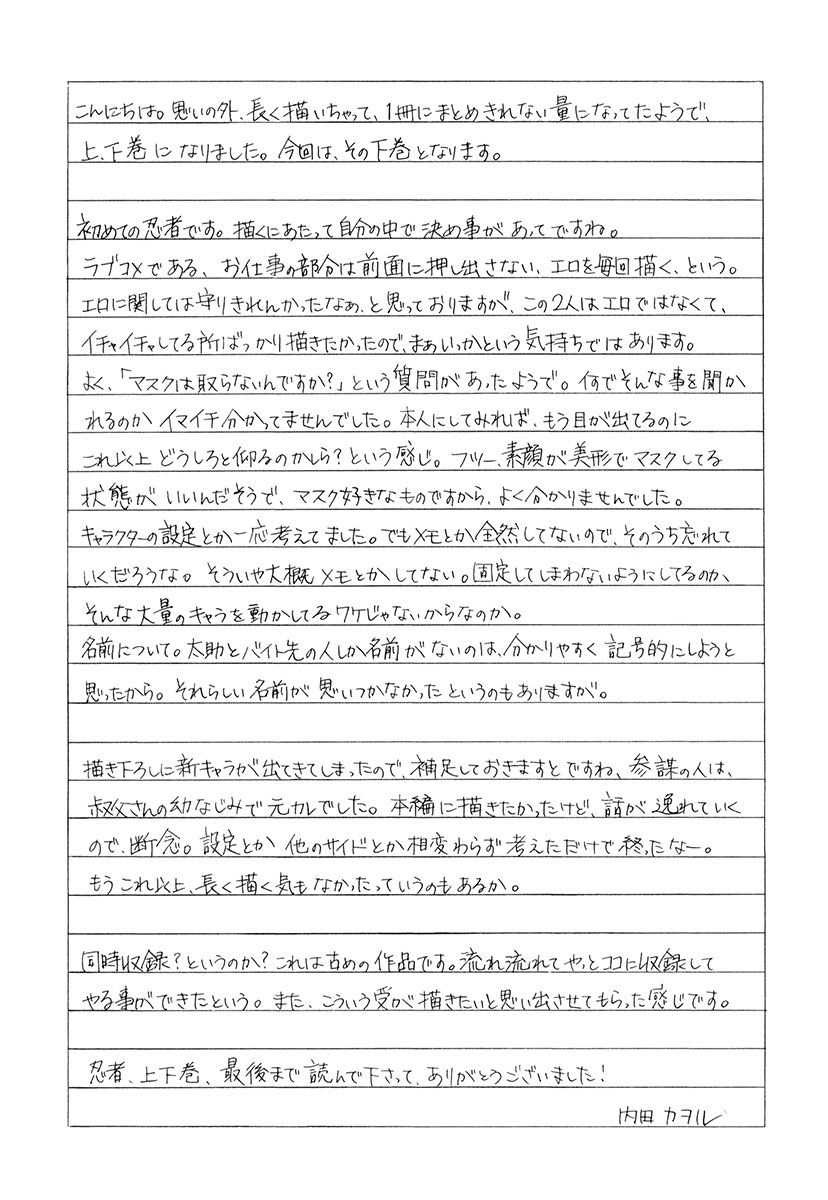 こんにちは。思いの外、長く描いちゃって、1冊にまとめきれない量になってたようで、
上、下巻になりました。今回は、その下巻となります。
初めての忍者です。描くにあたって自分の中で決め事があってですね。
ラブコメである、お仕事の部分は前面に押し出さない、エロを毎回描く、という。
エロに関しては守りきれんかったなぁ、と思っておりますが、この2人はエロではなくて、
イチャイチャしてる所ばっかり描きたかったので、まあいっかという気持ちではあります。
よく、「マスクは取らないんですか?」という質問があったようで。何でそんな事を聞か
れるのかイマイチ分かってませんでした。本人にしてみれば、もう目が出てるのに
これ以上どうしろと仰るのかしら?という感じ。フツー、素顔が美形でマスクしてる
状態がいいんだそうで、マスク好きなものですから、よく分かりませんでした。
キャラクターの設定とか一応考えてました。でもメモとか全然してないので、そのうち忘れて
いくだろうな。そういや大概メモとかしてない。固定してしまわないようにしてるのか、
そんな大量のキャラを動かしてるワケじゃないからなのか。
名前について。太助とバイト先の人しか名前がないのは、分かりやすく記号的にしようと
思ったから。それらしい名前が思いつかなかったというのもありますが。
描き下ろしに新キャラが出てきてしまったので、補足しておきますとですね、参謀の人は、
叔父さんの幼なじみで元カレでした。本編に描きたかったけど、話が逸れていく
ので、断念。設定とか他のサイドとか相変わらず考えただけで終ったなー。
もうこれ以上、長く描く気もなかったっていうのもあるか。
同時収録?というのか?これは古めの作品です。流れ流れてやっとココに収録して
やる事ができたという。また、こういう受が描きたいと思い出させてもらった感じです。
忍者、上下巻、最後まで読んで下さって、ありがとうございました!
内田カヲル